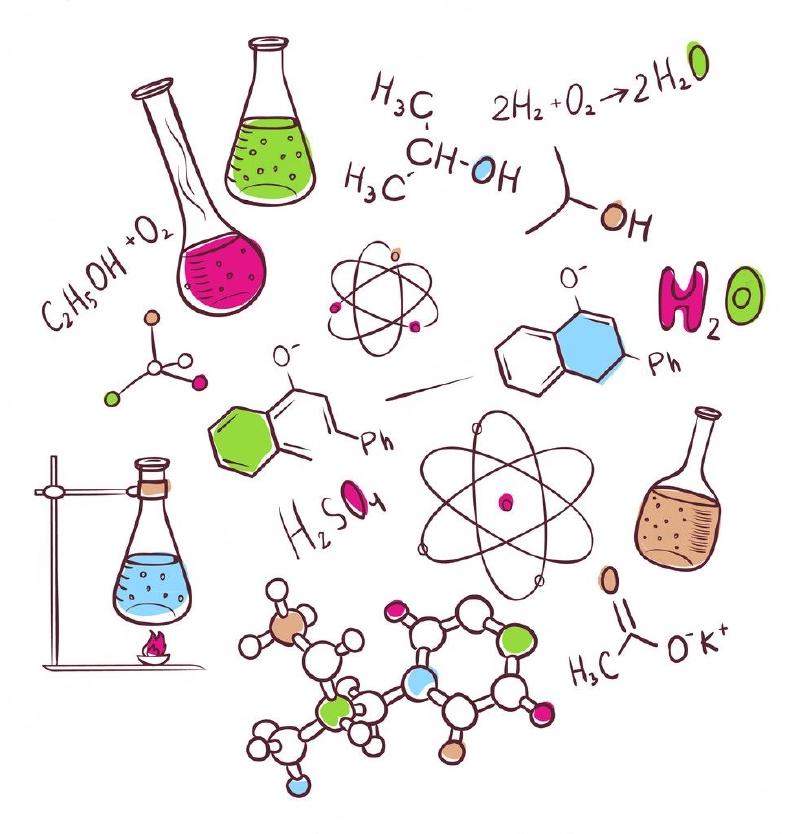 H₃C
CH-OH
H₃C
2H₂+O₂→2H₂O
OH
C₂H₅OH+O₂
H₂O
O⁻
Ph
O⁻
Ph
H₂SO₄
O
H₃C
O⁻K⁺